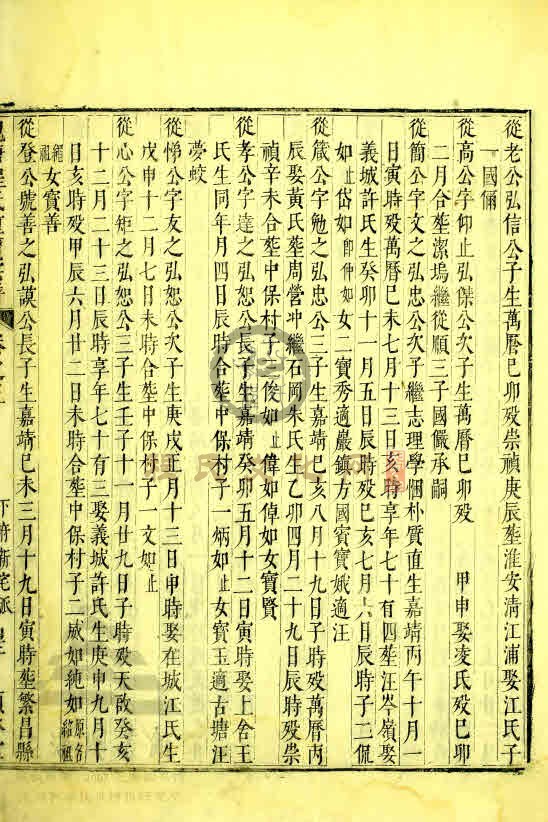 從老公弘信公子生萬曆己卯歿崇禎庚辰塟淮安淸江浦娶江氏子
一國俻
從高公字仰止弘傑公次子生萬曆己卯歿 甲申娶凌氏歿己卯
二月合塟潔塢繼從順三子國儼承嗣
從簡公字文之弘忠公次子繼志理學悃朴質直生嘉靖丙午十月一
日寅時歿萬曆己未七月十三日亥時享年七十有四塟江岑嶺娶
義城許氏生癸卯十一月五日辰時歿己亥七月六日辰時子二侃
如止岱如卽仲如女二寶秀適巖鎮方國賓寶娥適汪
從箴公字勉之弘忠公三子生嘉靖己亥八月十九日子時歿萬曆丙
辰娶黃氏塟周營冲繼石岡朱氏生乙卯四月二十九日辰時歿崇
禎辛未合塟中保村子三俊如止偉如倬如女寶賢
從孝公字達之弘恕公長子生嘉靖癸卯五月十二日寅時娶上舍王
氏生同年月四日辰時合塟中保村子一炳如止女寶玉適古塘汪
夢蛟
從悌公字友之弘恕公次子生庚戌正月十三日申時娶在城江氏生
戊申十二月七日未時合塟中保村子一文如止
從心公字矩之弘恕公三子生壬子十一月廿九日子時歿天啟癸亥
十二月二十三日辰時享年七十有三娶義城許氏生庚申九月十
日亥時歿甲辰六月廿二日未時合塟中保村子二威如純如原名紹祖
繩祖女寶善
從登公號善之弘謨公長子生嘉靖己未三月十九日寅時塟繁昌縣
下府新宅派